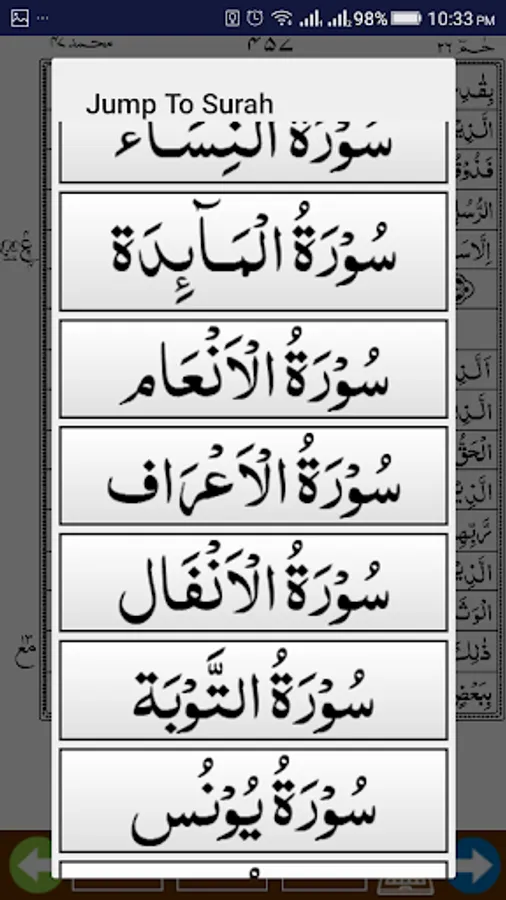 98% 10:33 PM
محمد ۴۷ ۴۵۷ حٰمٓ ۲۶
Jump To Surah
سُوْرَةُ النِّسَاء
سُوْرَةُ الْمَآئِدَة
سُوْرَةُ الْاَنْعَام
سُوْرَةُ الْاَعْرَاف
سُوْرَةُ الْاَنْفَال
سُوْرَةُ التَّوْبَة
سُوْرَةُ يُوْنُس